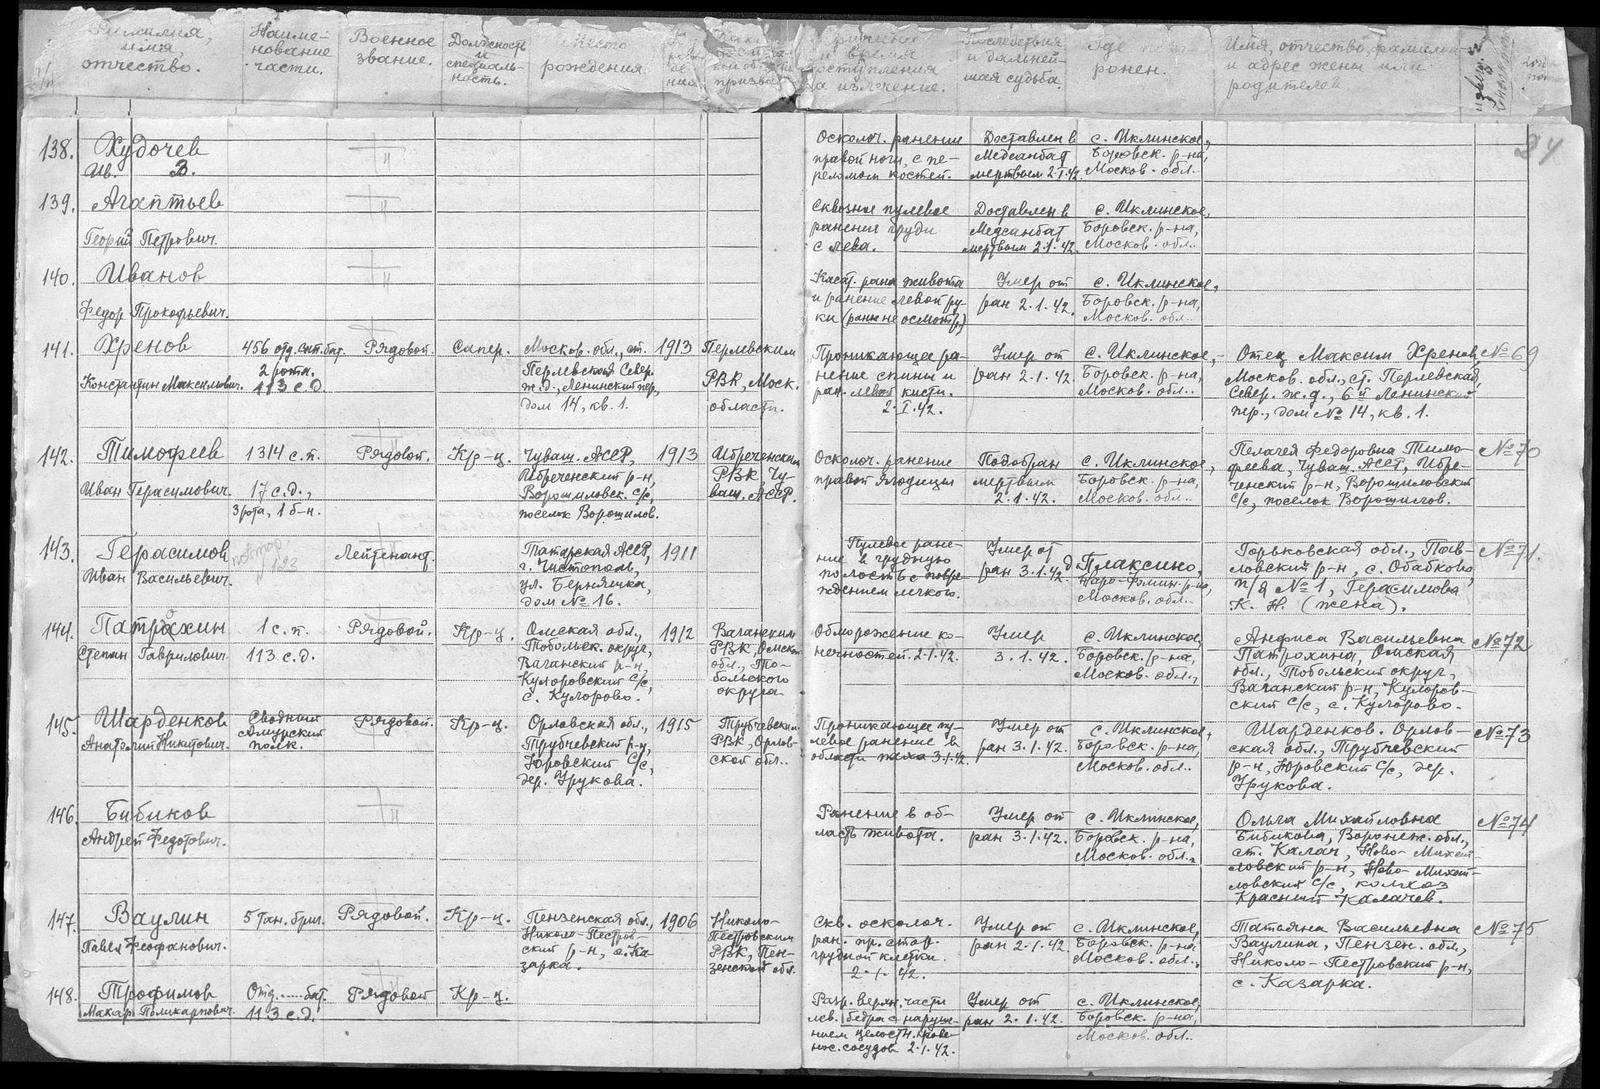 Фамилия,
имя,
отчество.
Наиме-
нование
части.
Военное
звание.
Должность
и
специаль-
ность.
Место
рождения
Последствия
и дальней-
шая судьба.
Где
ронен.
Имя, отчество, фамилия
и адрес жены или
родителей
34
138.
Худочев
Ив. З.
Осколоч. ранение
правой ноги, с пе-
реломом костей.
Доставлен в
Медсанбат
мертвым 2.1.42.
с. Иклинское,
Боровск. р-на,
Москов. обл.
139.
Агаптьев
Георгий Петрович.
Сквозное пулевое
ранение груди
с лева.
Доставлен в
Медсанбат
мертвым 2.1.42.
с. Иклинское,
Боровск. р-на,
Москов. обл..
140.
Иванов
Федор Прокофьевич.
Касат. рана живота
и ранение левой ру
ки (раны не осмотр.)
Умер от
ран 2.1.42.
с. Иклинское,
Боровск. р-на,
Москов. обл..
141.
Хренов
Константин Максимович.
456 отд. сап. бат.
2 рота.
113 с.д.
Рядовой.
Сапер.
Москов. обл., ст.
Перлевская Север.
ж.д., Ленинский пер,
дом 14, кв. 1.
1913
Перлевским
РВК, Моск.
области.
Проникающее ра-
нение спины и
ран. левой кисти.
2.I.42.
Умер от
ран 2.1.42.
с. Иклинское,
Боровск. р-на,
Москов. обл..
Отец Максим Хренов,
Москов. обл., ст. Перлевская,
Север. ж.д., 6й Ленинский
пер., дом № 14, кв. 1.
№ 69
142.
Тимофеев
Иван Герасимович.
1314 с.п.
17 с.д.,
3 рота, 1 б-н.
Рядовой.
Кр-ц.
Чуваш. АССР,
Ибреченский р-н,
Ворошиловск. с/с,
поселок Ворошилов.
1913
Ибреченским
РВК, Чу-
ваш. АССР.
Осколоч. ранение
правой ягодицы
Подобран
мертвым
2.1.42.
с. Иклинское,
Боровск. р-на,
Москов. обл..
Пелагея Федоровна Тимо-
феева, Чуваш. АССР, Ибре-
ченский р-н, Ворошиловский
с/с, поселок Ворошилов.
№ 70
143.
Герасимов
Иван Васильевич.
повтор
№ 123
Лейтенант.
Татарская АССР,
г. Чистополь,
дом № 16.
1911
Пулевое ране-
ние в грудную
полость с повре-
ждением легкого.
Умер от
ран 3.1.42.
д. Плаксино,
Наро-Фомин. р-на,
Москов. обл..
Горьковская обл., Пав-
ловский р-н, с. Абабково,
п/я № 1, Герасимова
К. Н. (жена).
№ 71.
144.
Патрохин
Степан Гаврилович.
1 с.п.
113 с.д.
Рядовой.
Кр-ц.
Омская обл.,
Тобольск. округ,
Вагайский р-н,
Куларовский с/с,
с. Куларово.
1912
Вагайским
РВК, Омской
обл., То-
больского
округа.
Обморожение ко-
нечностей. 2.1.42.
Умер
3.1.42.
с. Иклинское,
Боровск. р-на,
Москов. обл.,
Анфиса Васильевна
Патрохина, Омская
обл., Тобольский округ,
Вагайский р-н, Куларов-
ский с/с, с. Куларово.
№ 72
145.
Шарденков
Анатолий Никитович.
Сводный
Амурский
полк.
Рядовой.
Кр-ц.
Орловская обл.,
Трубчевский р-н,
Юровский с/с,
дер. Урукова.
1915
Трубчевским
РВК, Орлов-
ской обл..
Проникающее пу-
левое ранение в
области паха 3.1.42.
Умер от
ран 3.1.42.
с. Иклинское,
Боровск. р-на,
Москов. обл..
Шарденков. Орлов-
ская обл., Трубчевский
р-н, Юровский с/с, дер.
Урукова.
№ 73
146.
Бибиков
Андрей Федотович.
Ранение в об-
ласть живота.
Умер от
ран 3.1.42.
с. Иклинское,
Боровск. р-на,
Москов. обл.,
Ольга Михайловна
Бибикова, Воронеж. обл.,
ст. Калач, Ново-Михай-
ловский р-н, Ново-Михай-
ловский с/с, колхоз
Красный Калачев.
№ 74
147.
Ваулин
Павел Феофанович.
5 тан. бриг.
Рядовой.
Кр-ц.
Пензенская обл.,
Николо-Пестров-
ский р-н, с. Ка-
зарка.
1906
Николо-
Пестровским
РВК, Пен-
зенской обл.
Скв. осколоч.
ран. пр. стор.
грудной клетки.
2.1.42.
Умер от
ран 2.1.42.
с. Иклинское,
Боровск. р-на
Москов. обл.,
Татьяна Васильевна
Ваулина, Пензен. обл.,
Николо-Пестровский р-н,
с. Казарка.
№ 75
148.
Трофимов
Макар Поликарпович.
Отд. ..... бат.
113 с.д.
Рядовой
Кр-ц.
Разр. верхн. части
лев. бедра с наруше-
нием целостн. крове-
нос. сосудов 2.1.42.
Умер от
ран 2.1.42.
с. Иклинское,
Боровск. р-на,
Москов. обл..